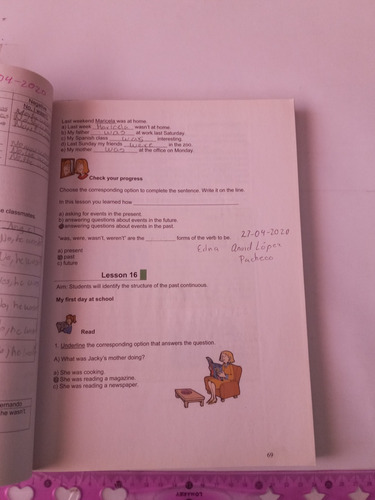 04-2020
Last weekend Maricela was at home.
a) Last week Maricela wasn't at home.
b) My father was at work last Saturday.
c) My Spanish class was interesting.
d) Last Sunday my friends were in the zoo.
e) My mother was at the office on Monday.
Check your progress
Choose the corresponding option to complete the sentence. Write it on the line.
In this lesson you learned how
a) asking for events in the present.
b) answering questions about events in the future.
answering questions about events in the past.
"was, were, wasn't, weren't" are the forms of the verb to be.
27-04-2020
a) present
past
c) future
Edna David López
Pacheco
Lesson 16
Aim: Students will identify the structure of the past continuous.
My first day at school
Read
1. Underline the corresponding option that answers the question.
A) What was Jacky's mother doing?
a) She was cooking.
She was reading a magazine.
c) She was reading a newspaper.
69
e classmates.
he wasn't.